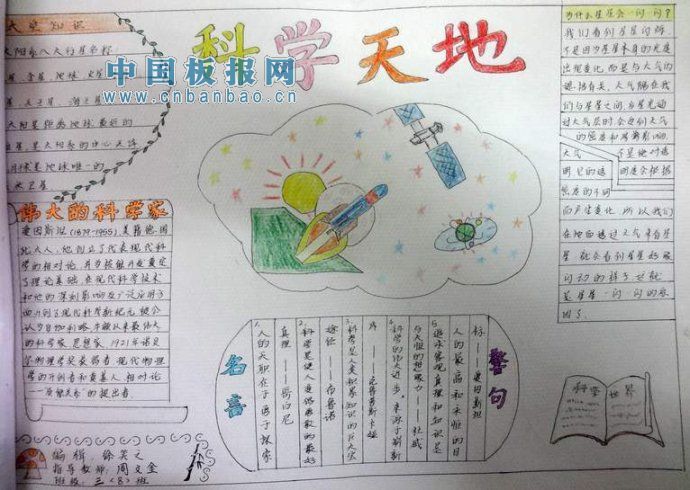 科学天地
中国板报网
www.cnbanbao.cn
太空知识
太阳系八大行星名称:
星、金星、地球、火星
星、天王星、海王星
太阳是距离地球最近的
恒星,是太阳系的中心天体
月球是地球唯一的
天然卫星
伟大的科学家
爱因斯坦(1879-1955)美籍德国
犹太人,他创立了代表现代科
学的相对论,并为核能开发奠定
了理论基础,在现代科学技术
和他的深刻影响及广泛应用下
开创了现代科学新纪元,被公
认为自伽利略、牛顿以来最伟大
的科学家、思想家,1921年诺贝
尔物理学奖获得者,现代物理
学的开创者和奠基人,相对论
——质能关系的提出者
编辑:徐笑之
指导教师:周文金
班级:三(8)班
名言
1、人的天职在于勇于探索
真理 ——哥白尼
2、科学是使人变得勇敢的最好
途径 ——布鲁诺
3、科学是人类积累知识的巨大宝
库 ——克鲁普斯卡娅
4、科学的伟大进步,来源于崭新
与大胆的想象力 ——杜威
5、追求客观真理和知识是
人的最高和永恒的目
标 ——爱因斯坦
警句
为什么星星会一闪一闪?
我们看到星星闪烁,
不是因为星星本身的光度
出现变化,而是与大气的
遮挡有关,大气隔在我
们与星星之间,当星光通
过大气层时,会受到大气
的密度和厚薄影响,
大气不是绝对透
明,它的透明度会根据
密度的不同
而产生变化,所以我们
在地面透过大气来看星
星,就会看到星星好像
闪动的样子。这就
是星星一闪一闪的原
因了。
科学世界